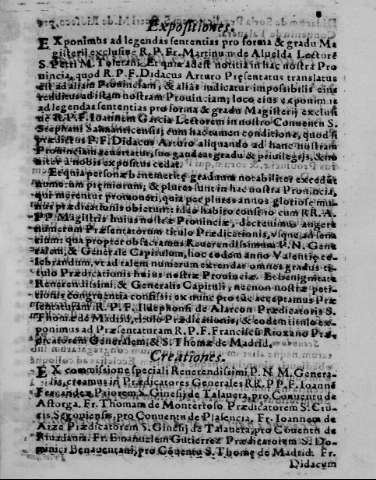 8
Expositiones.
EXponimus ad legendas sententias pro forma & gradu Ma
gisterij exclusiue R. P. Fr. Martinum de Alueida Lectorē
S. Petri M. Toletani. Et quia adest notitia in hac nostra Pro
uincia, quod R. P. F. Didacus Arturo Præsentatus translatus
est ad aliam Prouinciam, & aliàs iudicatur impossibilis eius
reditus ad istam nostram Prouinciam; loco eius exponimus
ad legendas sententias pro forma & gradu Magisterij exclusi
uè R. P. F. Ioannem Garcia Lectorem in nostro Conuentu S.
Stephani Salmanticensis; cum hac tamen conditione, quod si
prædictus P. F. Didacus Arturo aliquando ad hanc nostram
Prouinciam reuertatur, suo gaudeat gradu & priuilegijs, &
niter à nobis expositus cedat.
Et quia personæ benemeritæ graduum notabiliter excedūt
numerum præmiorum, & plures sunt in hac nostra Prouincia,
qui merentur promoueri, quia per plures annos gloriose mu
nus prædicationis obierunt: ideo habito consensu cum RR. A.
PP. Magistris huius nostræ Prouinciæ, decreuimus augere
numerum Præsentatorum titulo Prædicationis, vsque ad
tium: qua propter obsecramus Reuerendissimum P. N. Gene
ralem, & Generale Capitulum, hoc eodem anno Valentiæ ce
lebrandum, vt ad talem numerum extendat omnes gradus ti
tulo Prædicationis huius nostræ Prouinciæ. Et benignitate
Reuerendissimi, & Generalis Capituli, necnon nostræ peti
tionis congruentia confisi: ex nunc pro tūc acceptamus Præ
sentaturam R. P. F. Ildephonsi de Alarcon Prædicatoris S.
Thomæ de Madrid, titulo Prædicationis, & eodem titulo ex
ponimus ad Præsentaturam R. P. F. Franciscū Riozano Præ
dicatorem Generalem, & S. Thomæ de Madrid.
Creationes.
EX commissione speciali Reuerendissimi P. N. M. Genera
lis, creamus in Prædicatores Generales RR. PP. F. Ioannē
Fernandez Paiorem S. Ginesij de Talauera, pro Conuentu de
Astorga. Fr. Thomam de Monterroso Prædicatorem S. Cru
cis Segouiensis, pro Conuentu de Plasencia. Fr. Ioannem de
Arze Prædicatorem S. Ginesij de Talauera, pro Conuentu de
Fr. Emanuelem Gutierrez Prædicatorem S. Do
minici Benauentani, pro Cōuentu S. Thomæ de Madrid. Fr.
Didacum